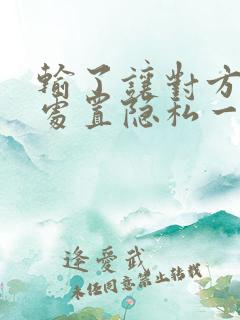 輸了讓對方
處置隐私一
逢愛武
未经同意禁止转载